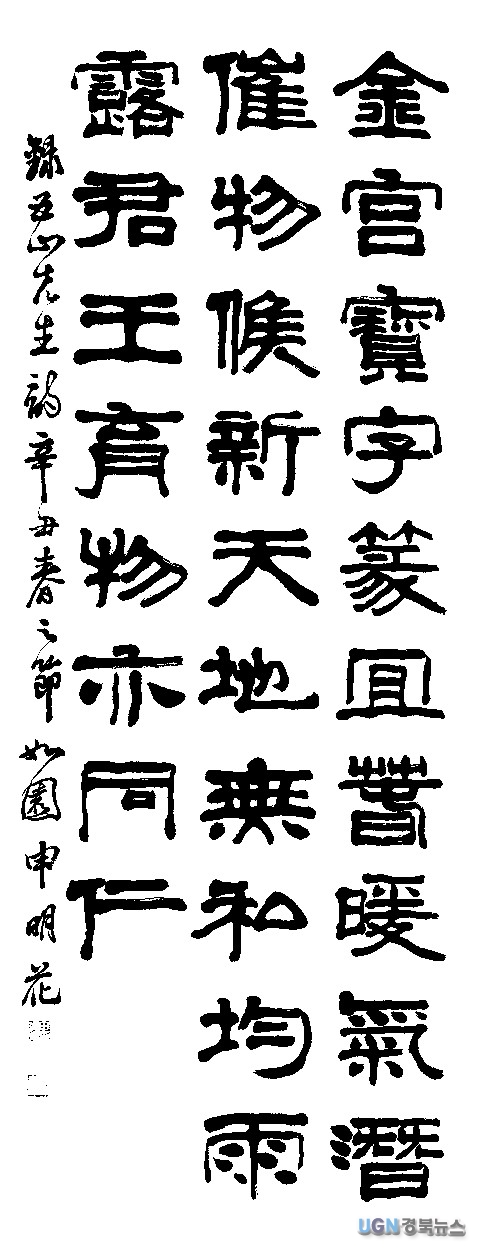 金宮寶字篆宜萅暖氣潛
催物候新天地無和均雨
露君王育物亦同仁
錄五山先生韵辛丑春之節 如園申明花
UGN경북뉴스